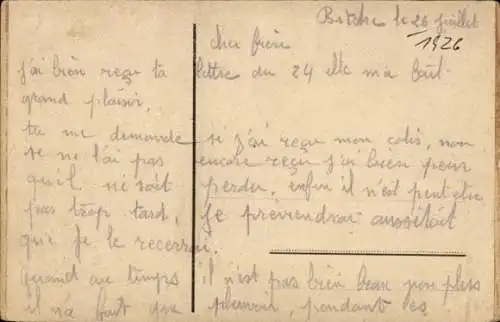 Bitche le 26 juillet
1926
cher frère
j'ai bien reçu ta lettre du 24 elle ma fait
grand plaisir.
tu me demande si j'ai reçu mon colis, non
je ne l'ai pas encore reçu j'ai bien peur
qu'il ne soit perdu, enfin il n'est peut etre
pas trop tard, je préviendrai aussitôt
que je le recevrai.
quand au temps il n'est pas bien beau non plus
il n'a fait que pleuvoir, pendant ces